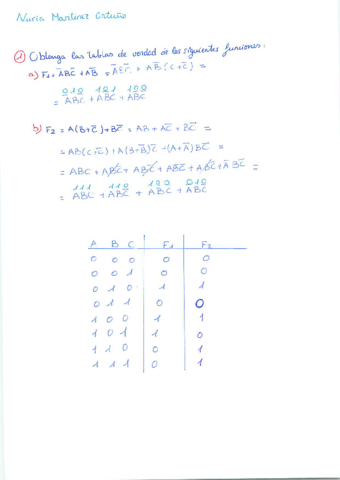 Nuria Martinez Ortuño
① Obtenga las tablas de verdad de las siguientes funciones:
a) F1 = A̅BC̅ + AB̅ = A̅BC̅ + AB̅(C+C̅) =
010 101 100
= A̅BC̅ + AB̅C + AB̅C̅
b) F2 = A(B+C̅) + BC̅ = AB + AC̅ + BC̅ =
= AB(C+C̅) + A(B+B̅)C̅ + (A+A̅)BC̅ =
= ABC + ABC̅ + ABC̅ + AB̅C̅ + ABC̅ + A̅BC̅ =
111 110 100 010
= ABC + ABC̅ + AB̅C̅ + A̅BC̅
A B C F1 F2
0 0 0 0 0
0 0 1 0 0
0 1 0 1 1
0 1 1 0 0
1 0 0 1 1
1 0 1 1 0
1 1 0 0 1
1 1 1 0 1